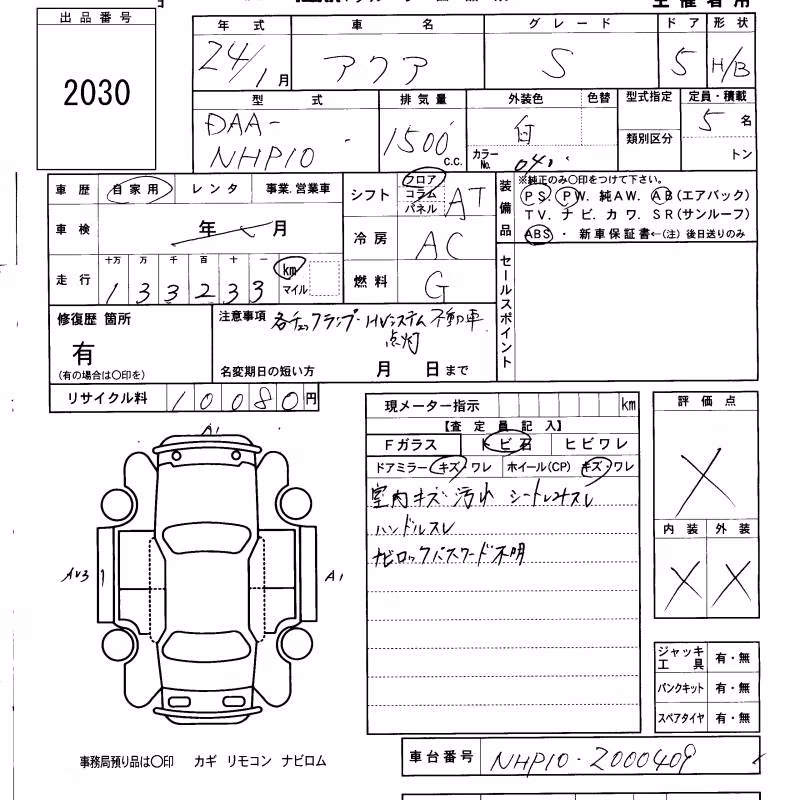 出品番号
2030
年式 車名 グレード ドア 形状
24/1月 アクア S 5 H/B
型式 排気量 外装色 色替 型式指定 定員・積載
DAA-
NHP10
1500 c.c.
白
カラーNo. 040
類別区分
5名
トン
車歴 自家用 レンタ 事業.営業車
車検 年 月
走行 十万 万 千 百 十 一
133233 km マイル
シフト フロア コラム パネル AT
冷房 AC
燃料 G
装備品
※純正のみ〇印をつけて下さい。
PS. PW. 純AW. AB(エアバック)
TV. ナビ. カワ. SR(サンルーフ)
ABS ・ 新車保証書←(注) 後日送りのみ
セールスポイント
修復歴 箇所
有
(有の場合は〇印を)
注意事項 各チェックランプ・HVシステム 不動車
点灯
名変期日の短い方 月 日まで
リサイクル料 10080円
現メーター指示 km
【査定員記入】
Fガラス トビ石 ヒビワレ
ドアミラー キズ・ワレ ホイール(CP) キズ・ワレ
室内キズ 汚れ シートしみスレ
ハンドルスレ
ナビロックパスワード不明
評価点
X
内装 外装
X X
A1
AV3
A1
ジャッキ工具 有・無
パンクキット 有・無
スペアタイヤ 有・無
事務局預り品は〇印 カギ リモコン ナビロム
車台番号 NHP10-2000409